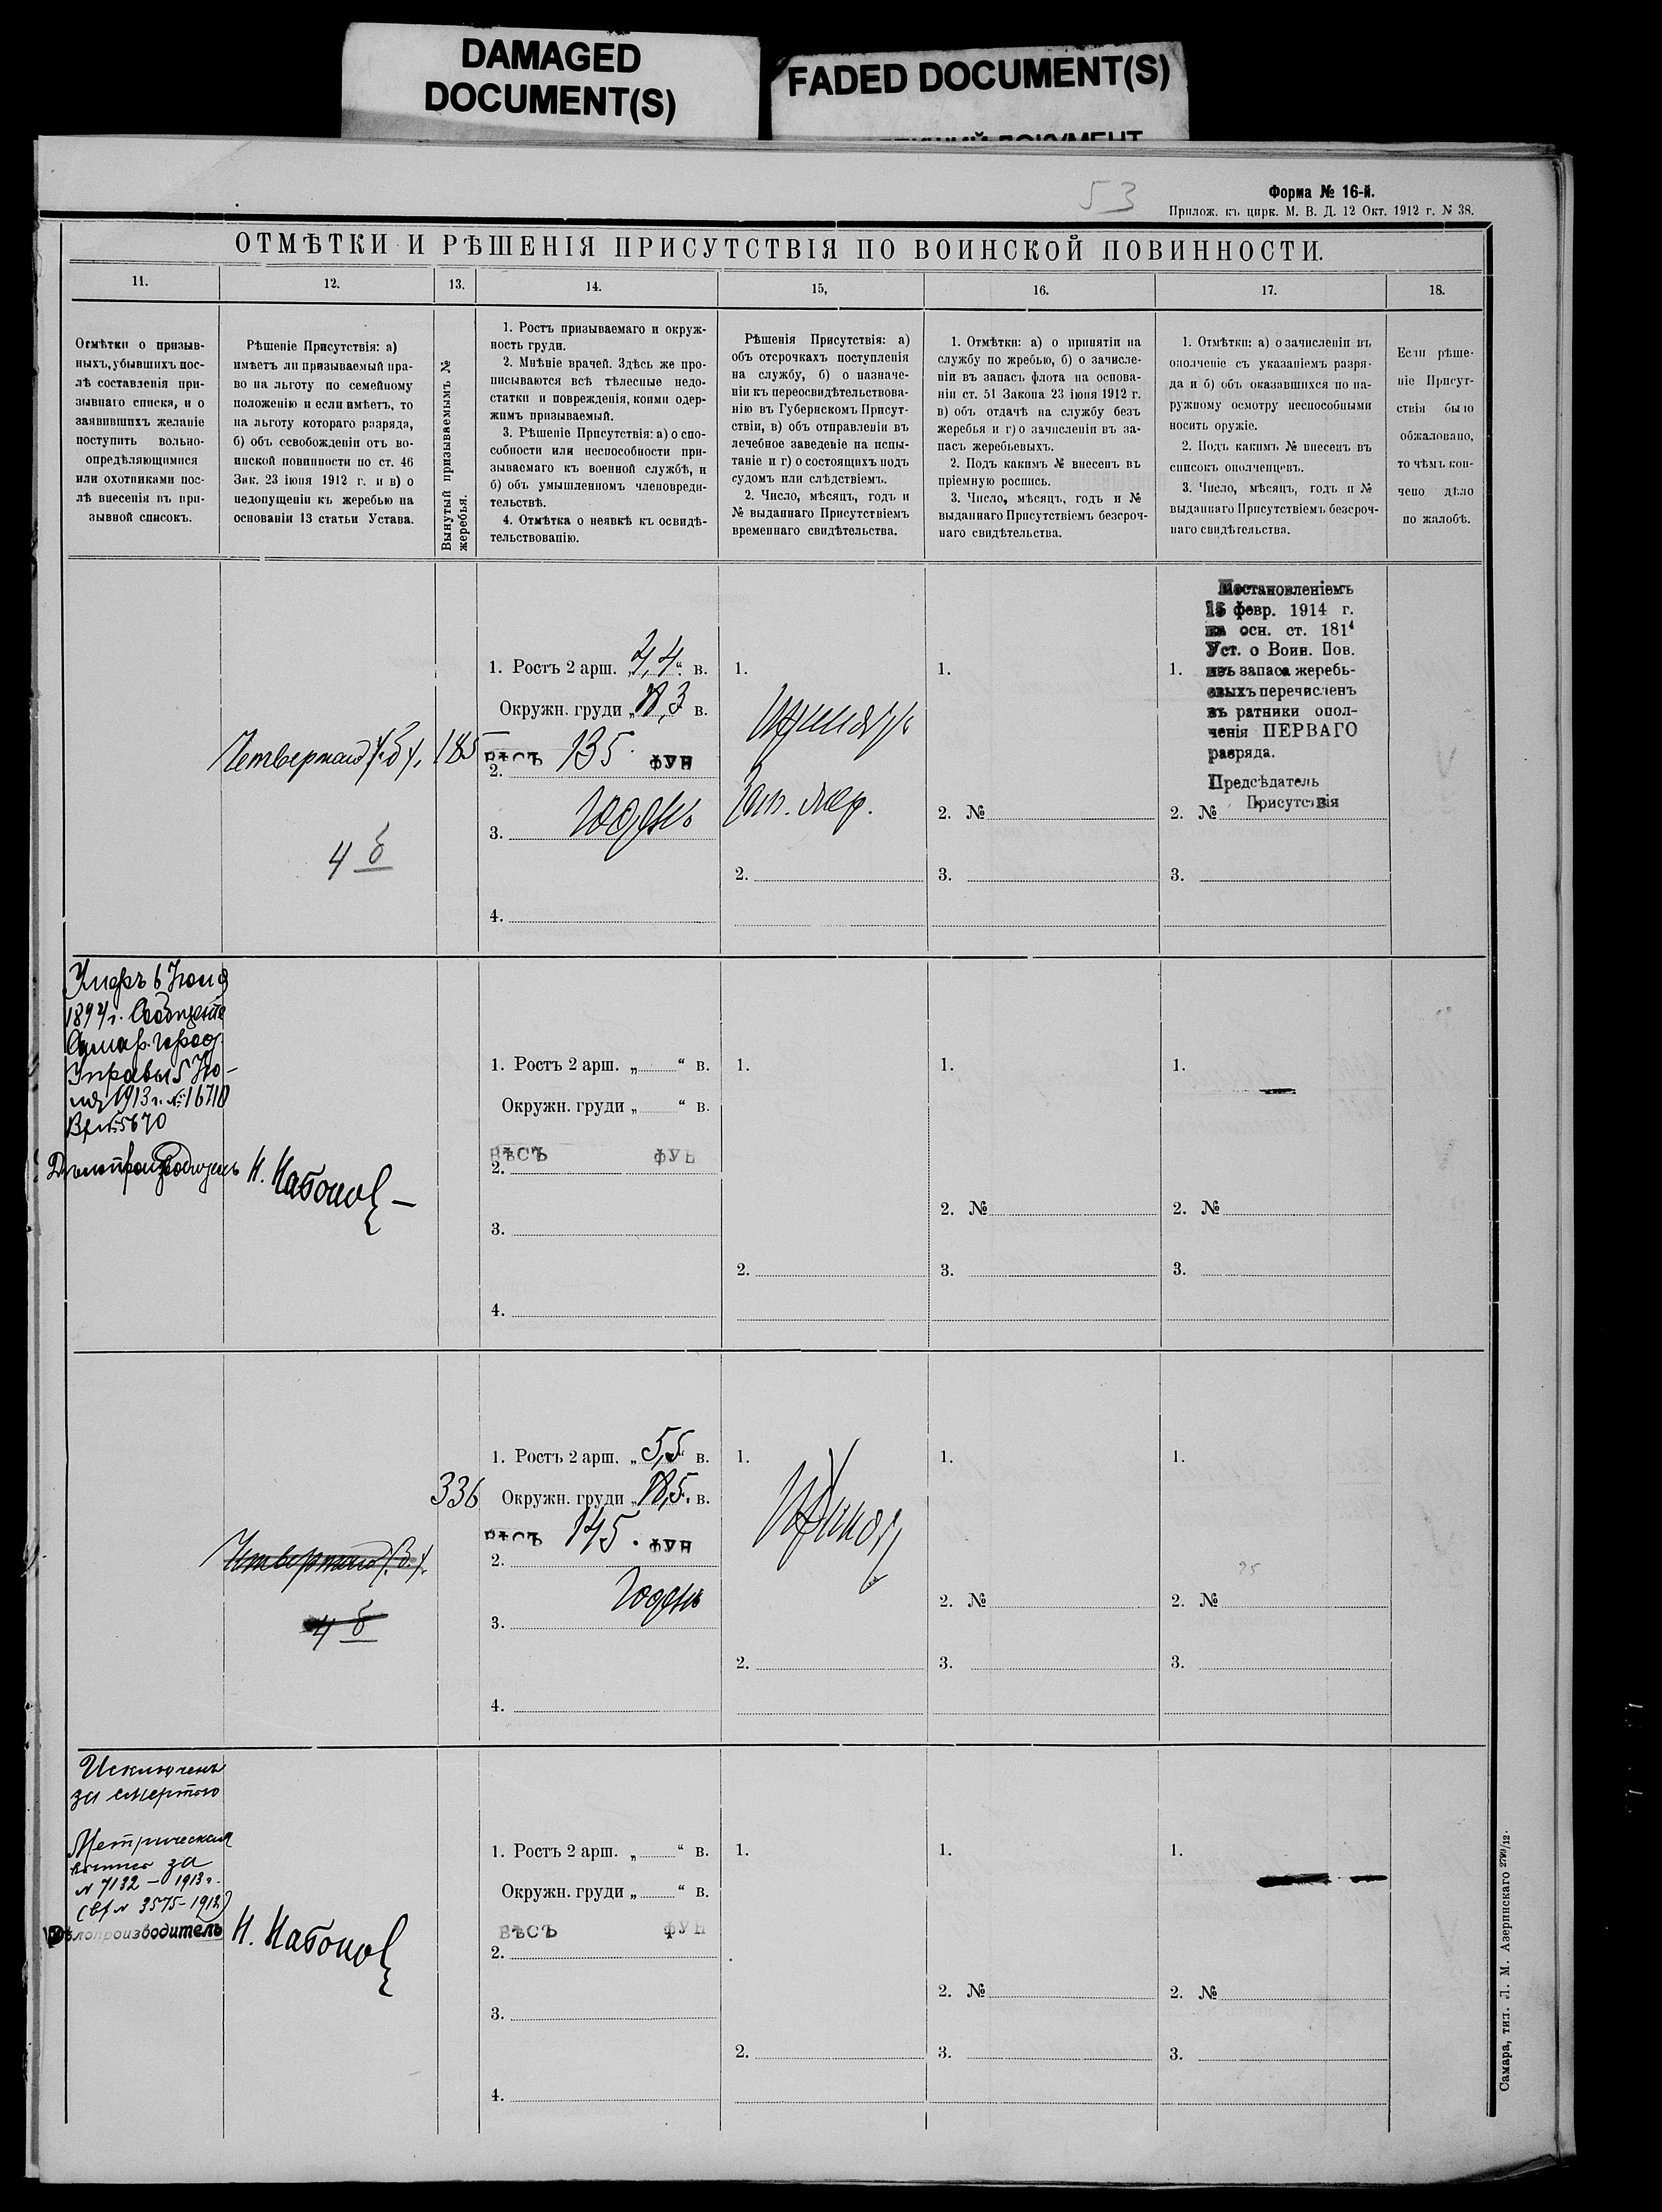 DAMAGED
DOCUMENT(S)
FADED DOCUMENT(S)
53
Форма № 16-й.
Прилож. къ цирк. М. В. Д. 12 Окт. 1912 г. № 38.
ОТМѢТКИ И РѢШЕНІЯ ПРИСУТСТВІЯ ПО ВОИНСКОЙ ПОВИННОСТИ.
11.
12.
13.
14.
15,
16.
17.
18.
Отмѣтки о призыв-
ныхъ, убывшихъ пос-
лѣ составленія при-
зывнаго списка, и о
заявившихъ желаніе
поступить вольно-
опредѣляющимися
или охотниками пос-
лѣ внесенія въ при-
зывной списокъ.
Рѣшеніе Присутствія: а)
имѣетъ ли призываемый пра-
во на льготу по семейному
положенію и если имѣетъ, то
на льготу котораго разряда,
б) объ освобожденіи отъ во-
инской повинности по ст. 46
Зак. 23 іюня 1912 г. и в) о
недопущеніи къ жеребью на
основаніи 13 статьи Устава.
Вынутый призываемымъ №
жеребья.
1. Ростъ призываемаго и окруж-
ность груди.
2. Мнѣніе врачей. Здѣсь же про-
писываются всѣ тѣлесные недо-
статки и поврежденія, коими одер-
жимъ призываемый.
3. Рѣшеніе Присутствія: а) о спо-
собности или неспособности при-
зываемаго къ военной службѣ, и
б) объ умышленномъ членовреди-
тельствѣ.
4. Отмѣтка о неявкѣ къ освидѣ-
тельствованію.
Рѣшенія Присутствія: а)
объ отсрочкахъ поступленія
на службу, б) о назначе-
ніи къ переосвидѣтельствова-
нію въ Губернскомъ Присут-
ствіи, в) объ отправленіи въ
лечебное заведеніе на испы-
таніе и г) о состоящихъ подъ
судомъ или слѣдствіемъ.
2. Число, мѣсяцъ, годъ и
№ выданнаго Присутствіемъ
временнаго свидѣтельства.
1. Отмѣтки: а) о принятіи на
службу по жребью, б) о зачисле-
ніи въ запасъ флота на основа-
ніи ст. 51 Закона 23 іюня 1912 г.
в) объ отдачѣ на службу безъ
жеребья и г) о зачисленіи въ за-
пасъ жеребьевыхъ.
2. Подъ какимъ № внесенъ въ
пріемную роспись.
3. Число, мѣсяцъ, годъ и №
выданнаго Присутствіемъ безсроч-
наго свидѣтельства.
1. Отмѣтки: а) о зачисленіи въ
ополченіе съ указаніемъ разря-
да и б) объ оказавшихся по на-
ружному осмотру неспособными
носить оружіе.
2. Подъ какимъ № внесенъ въ
списокъ ополченцевъ.
3. Число, мѣсяцъ, годъ и №
выданнаго Присутствіемъ безсроч-
наго свидѣтельства.
Если рѣше-
ніе Присут-
ствія было
обжаловано,
то чѣмъ кон-
чено дѣло
по жалобѣ.
Четвертаго
4 б
185
1. Ростъ 2 арш. „ 4 “ в.
Окружн. груди „ 3 в.
вѣсъ 135 фун
2.
3. Годенъ
4.
1.
2.
1.
2. №
3.
Постановленіемъ
15 февр. 1914 г.
на осн. ст. 181⁴
Уст. о Воин. Пов.
1. изъ запаса жеребь-
евыхъ перечисленъ
въ ратники опол-
ченія ПЕРВАГО
разряда.
Предсѣдатель
Присутствія
2. №
3.
Умеръ 6 Іюня
1894 г. Сообщеніе
Самар. город.
Управы 5 Ію-
ля 1913 г. № 16710
Вх № 5670
Дѣлопроизводитель
1. Ростъ 2 арш. „ “ в.
Окружн. груди „ “ в.
вѣсъ фун
2.
3.
4.
1.
2.
1.
2. №
3.
1.
2. №
3.
Четвертаго
4 б
336
1. Ростъ 2 арш. „ 5,5 “ в.
Окружн. груди „ 18,5 в.
вѣсъ 145 фун
2.
3. Годенъ
4.
1.
2.
1.
2. №
3.
1.
2. №
3.
Исключенъ
за смертью
Метрическая
выпись за
№ 7132 – 1913 г.
(вх № 3575 - 1913)
Дѣлопроизводитель
1. Ростъ 2 арш. „ “ в.
Окружн. груди „ “ в.
вѣсъ фун
2.
3.
4.
1.
2.
1.
2. №
3.
1.
2. №
3.
Самара, тип. Л. М. Азеринскаго 2799/12.